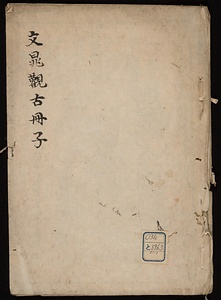 文晁觀古冊子